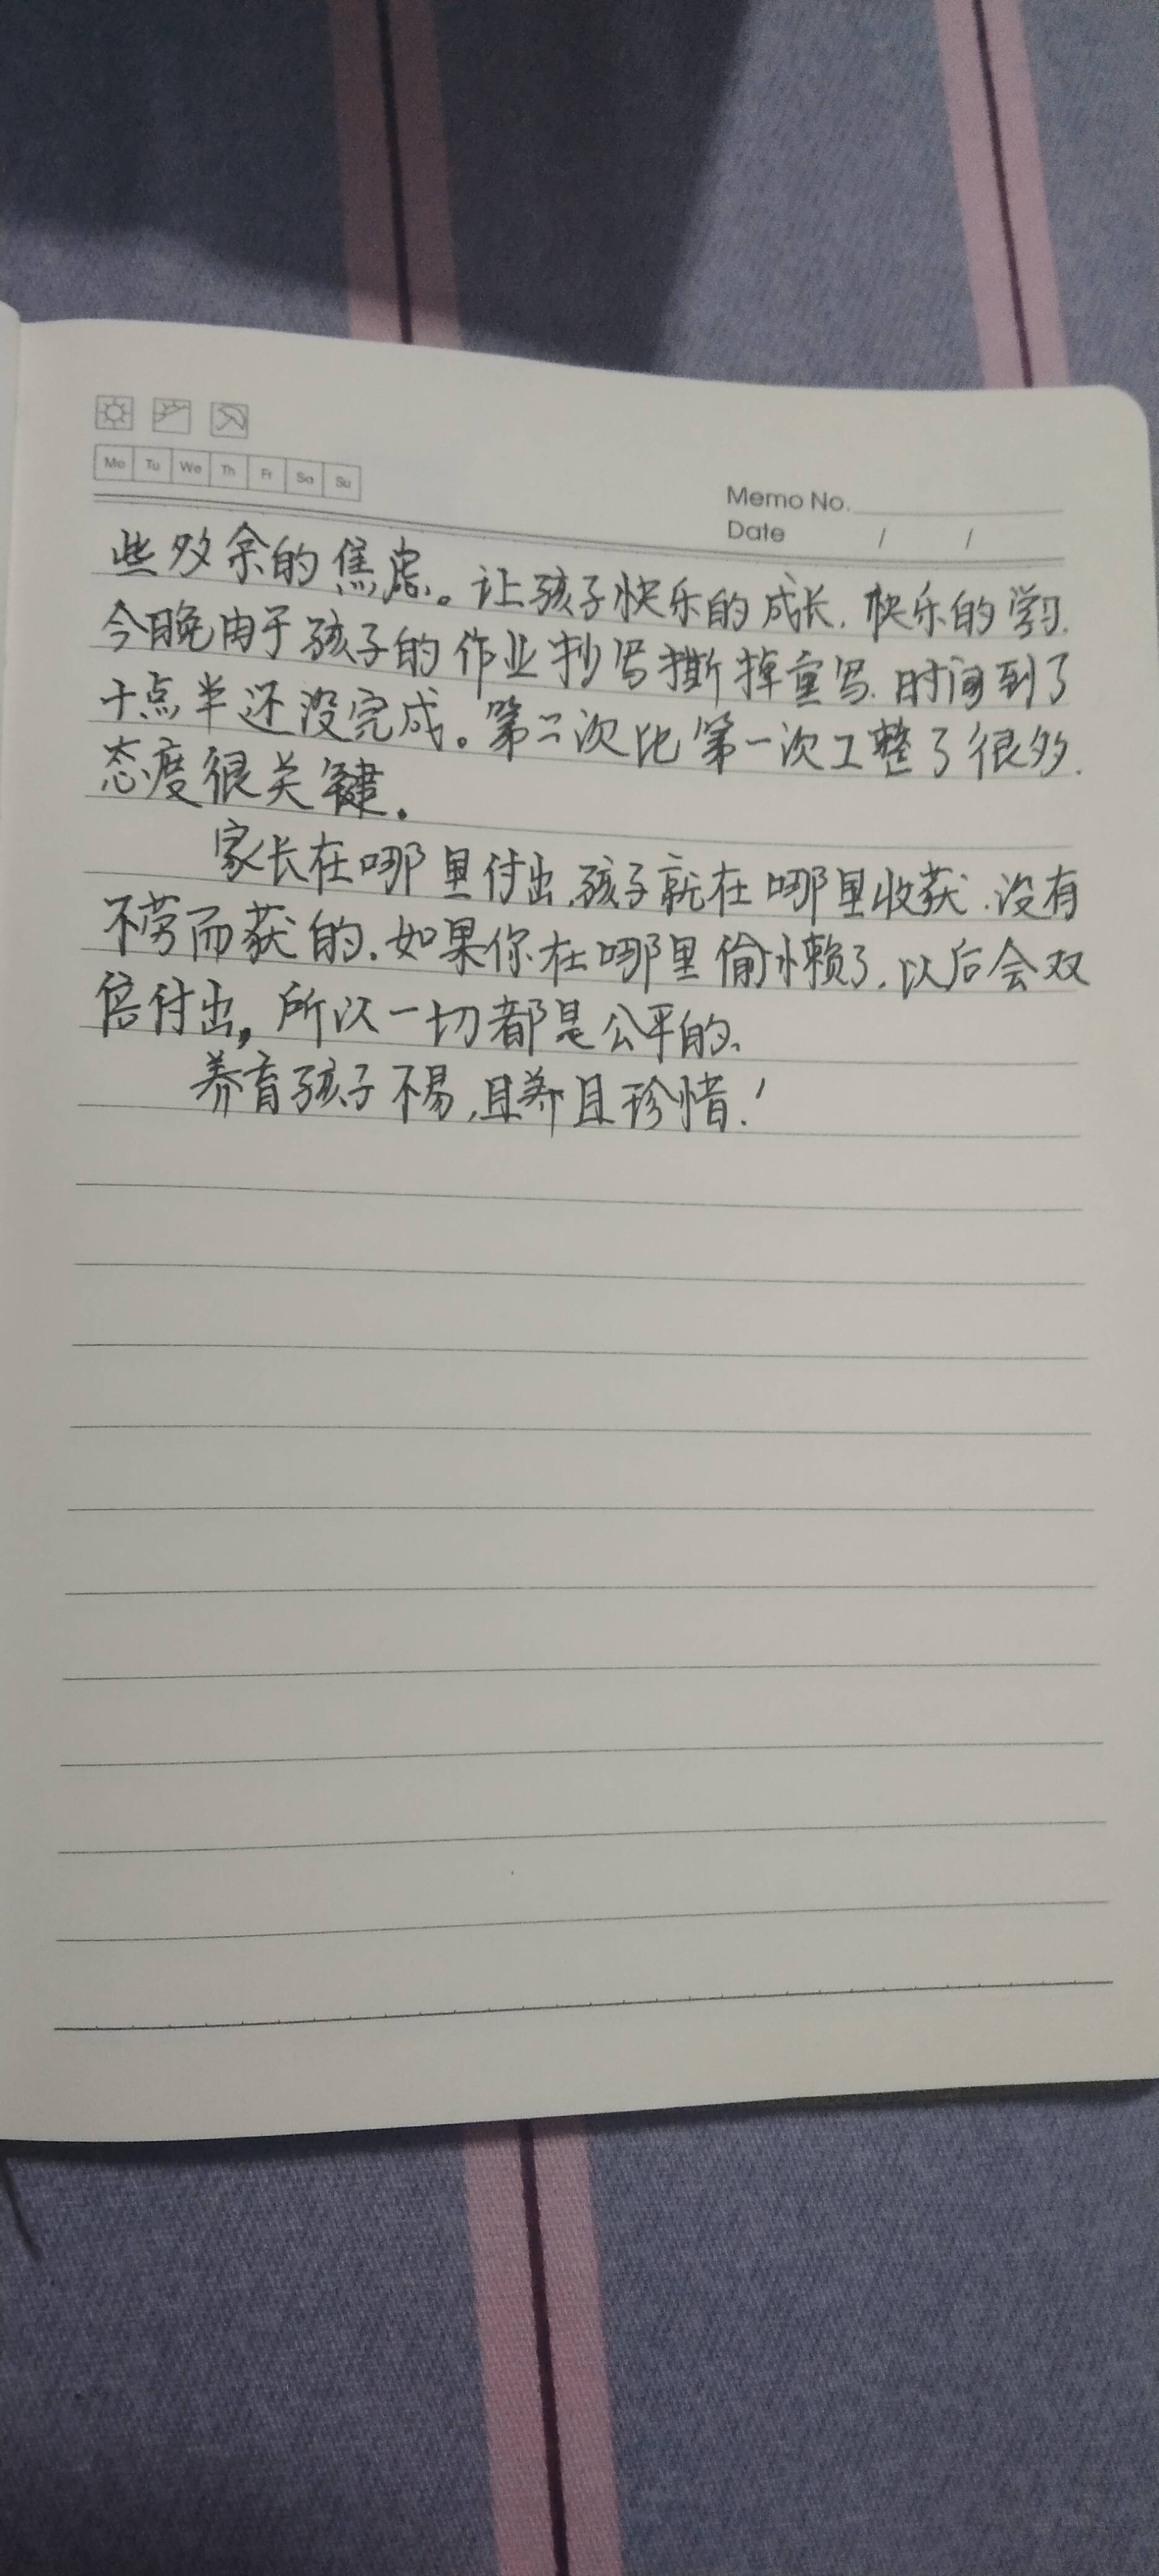 Mo Tu We Th Fr Sa Su
Memo No.
Date / /
些多余的焦虑。让孩子快乐的成长,快乐的学习.
今日晚由于孩子的作业抄写撕掉重写.时间到了
十点半还没完成。第二次比第一次工整了很多.
态度很关键.
家长在哪里付出,孩子就在哪里收获.没有
不劳而获的.如果你在哪里偷懒了,以后会双
倍付出,所以一切都是公平的、
养育孩子不易,且养且珍惜!